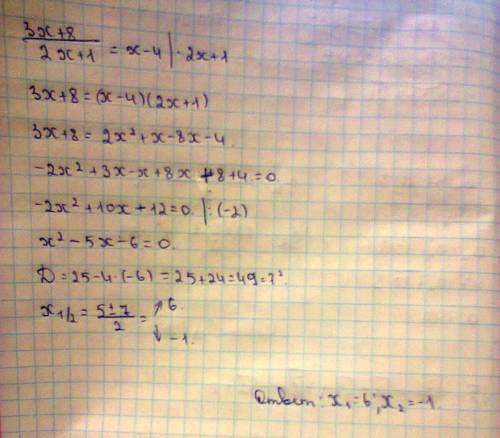 3x+8 / 2x+1 = x-4 | · 2x+1
3x+8 = (x-4)(2x+1)
3x+8 = 2x² + x - 8x - 4.
-2x² + 3x - x + 8x + 8 + 4 = 0.
-2x² + 10x + 12 = 0. | : (-2)
x² - 5x - 6 = 0.
D = 25 - 4·(-6) = 25 + 24 = 49 = 7²
x1/2 = 5±7 / 2 = ↗ 6.
↓ -1.
Ответ: x₁ = 6; x₂ = -1.